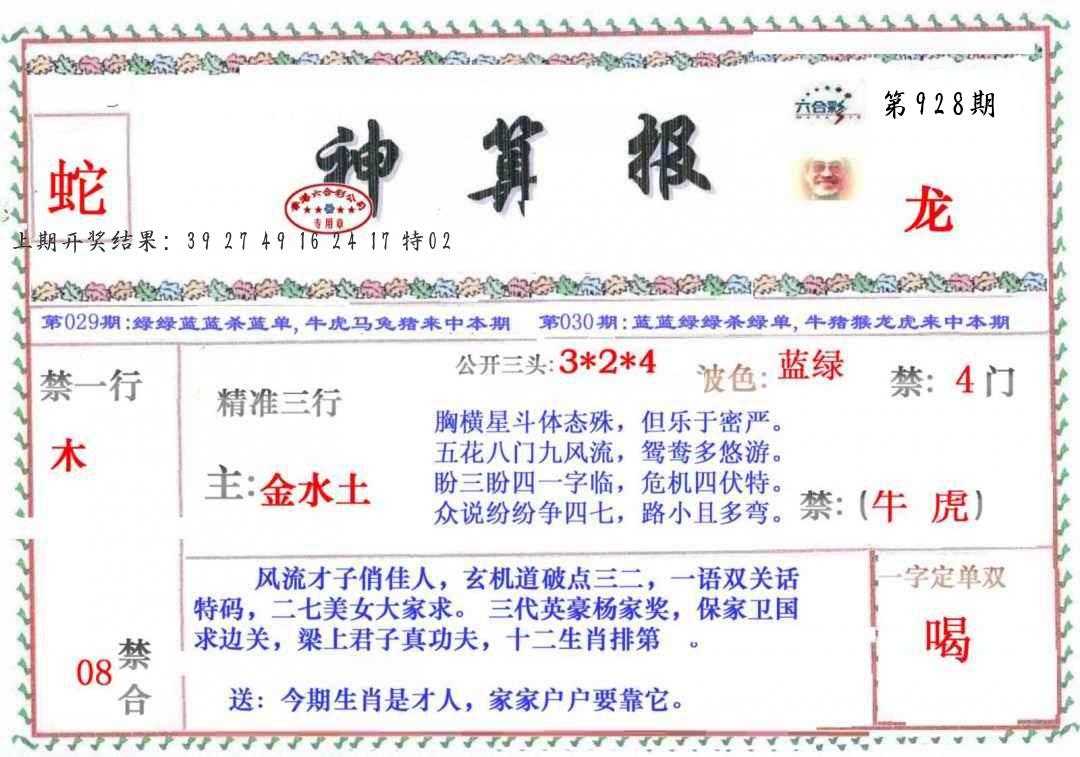 六合彩
第928期
神算报
蛇
香港六合彩公司
专用章
龙
上期开奖结果: 39 27 49 16 24 17 特02
第029期:绿绿蓝蓝杀蓝单,牛虎马兔猪来中本期 第030期:蓝蓝绿绿杀绿单,牛猪猴龙虎来中本期
公开三头:3*2*4 波色:蓝绿 禁:4门
禁一行
木
精准三行
主:金水土
胸横星斗体态殊，但乐于密严。
五花八门九风流，鸳鸯多悠游。
盼三盼四一字临，危机四伏特。
众说纷纷争四七，路小且多弯。
禁:(牛 虎)
风流才子俏佳人，玄机道破点三二，一语双关话
特码，二七美女大家求。三代英豪杨家奖，保家卫国
求边关，梁上君子真功夫，十二生肖排第 。
送：今期生肖是才人，家家户户要靠它。
一字定单双
喝
08
禁合